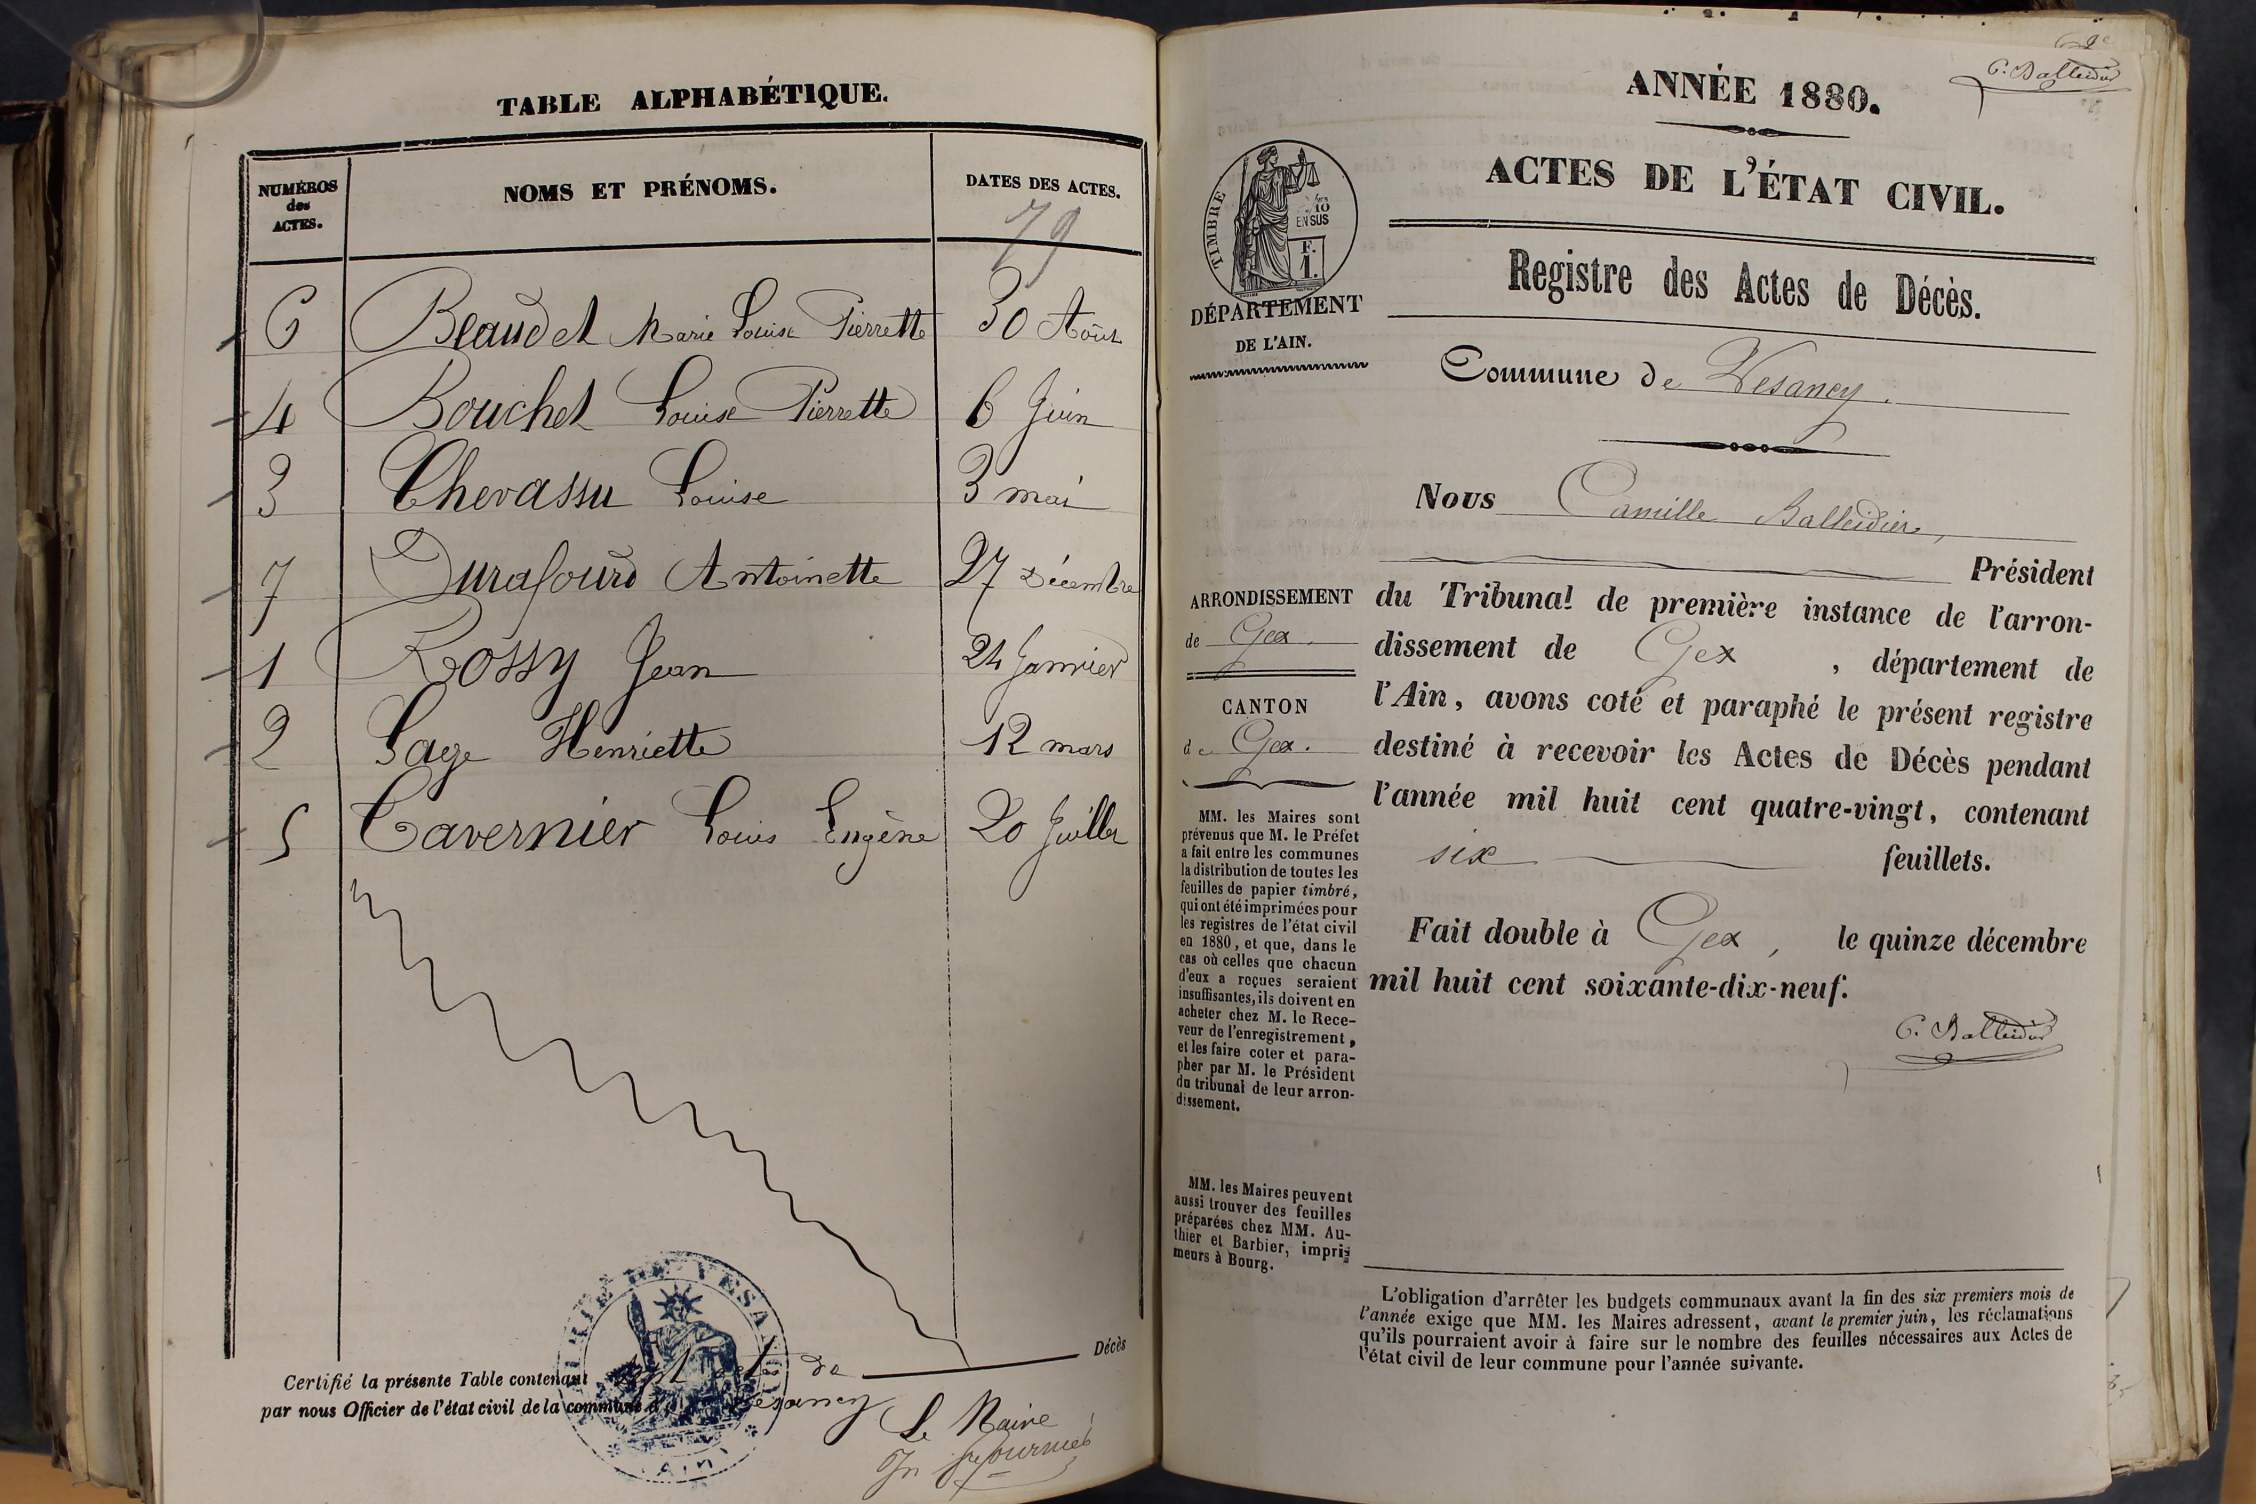 TABLE ALPHABÉTIQUE.
NUMÉROS
des
ACTES.
NOMS ET PRÉNOMS.
DATES DES ACTES.
79
6 Beaudet Marie Louise Pierrette 30 Août
4 Bouchet Louise Pierrette 6 Juin
3 Chevassu Louise 3 mai
7 Durafourd Antoinette 27 Décembre
1 Rossy Jean 24 Janvier
2 Sage Henriette 12 mars
5 Tavernier Louis Eugène 20 Juillet
Décès
Certifié la présente Table contenant sept de
par nous Officier de l'état civil de la commune d Vesancy
Le Maire
MAIRIE DE VESANCY
AIN
C. Balleidier
ANNÉE 1880.
ACTES DE L'ÉTAT CIVIL.
TIMBRE
10
EN SUS
F.
1.
DÉPARTEMENT
DE L'AIN.
Registre des Actes de Décès.
Commune de Vesancy.
Nous Camille Balleidier,
Président
du Tribunal de première instance de l'arron-
dissement de Gex, département de
l'Ain, avons coté et paraphé le présent registre
destiné à recevoir les Actes de Décès pendant
l'année mil huit cent quatre-vingt, contenant
six feuillets.
Fait double à Gex, le quinze décembre
mil huit cent soixante-dix-neuf.
C. Balleidier
ARRONDISSEMENT
de Gex.
CANTON
de Gex.
MM. les Maires sont
prévenus que M. le Préfet
a fait entre les communes
la distribution de toutes les
feuilles de papier timbré,
qui ont été imprimées pour
les registres de l'état civil
en 1880, et que, dans le
cas où celles que chacun
d'eux a reçues seraient
insuffisantes, ils doivent en
acheter chez M. le Rece-
veur de l'enregistrement,
et les faire coter et para-
pher par M. le Président
du tribunal de leur arron-
dissement.
MM. les Maires peuvent
aussi trouver des feuilles
préparées chez MM. Au-
thier et Barbier, impri-
meurs à Bourg.
L'obligation d'arrêter les budgets communaux avant la fin des six premiers mois de
l'année exige que MM. les Maires adressent, avant le premier juin, les réclamations
qu'ils pourraient avoir à faire sur le nombre des feuilles nécessaires aux Actes de
l'état civil de leur commune pour l'année suivante.